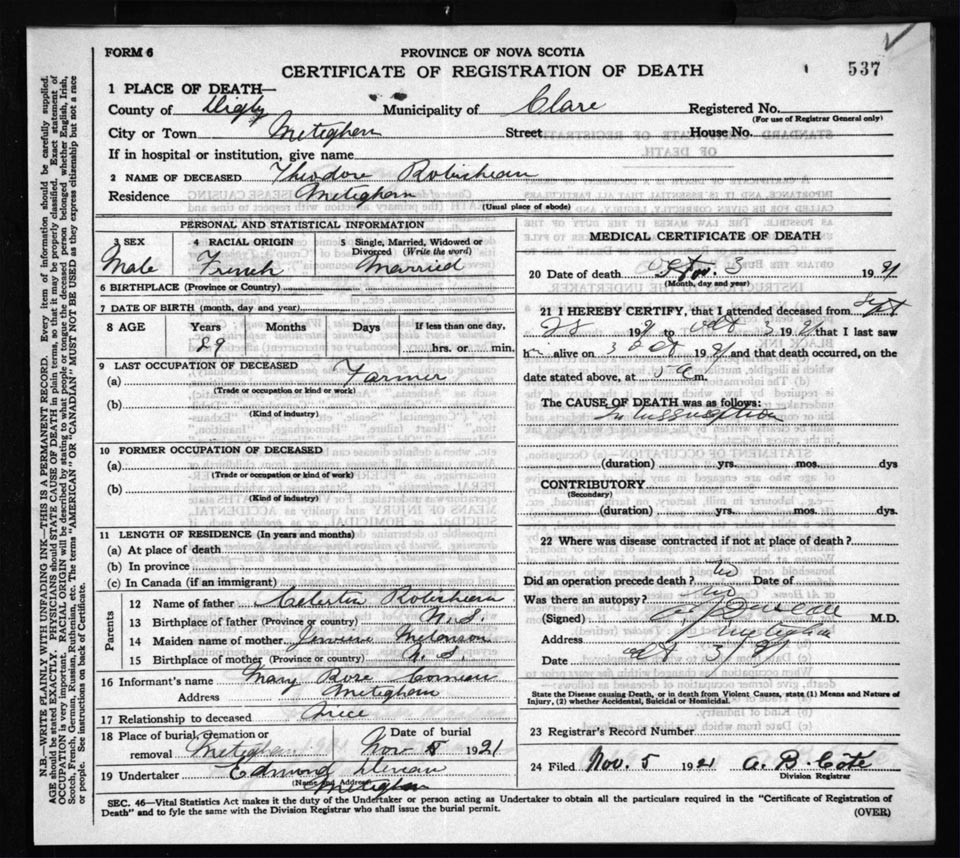 FORM 6
PROVINCE OF NOVA SCOTIA
CERTIFICATE OF REGISTRATION OF DEATH
537
1 PLACE OF DEATH—
County of Digby Municipality of Clare Registered No.
(For use of Registrar General only)
City or Town Meteghan Street House No.
If in hospital or institution, give name
2 NAME OF DECEASED Theodore Robicheau
Residence Meteghan
(Usual place of abode)
PERSONAL AND STATISTICAL INFORMATION
3 SEX
Male
4 RACIAL ORIGIN
French
5 Single, Married, Widowed or
Divorced (Write the word)
Married
6 BIRTHPLACE (Province or Country)
7 DATE OF BIRTH (month, day and year)
8 AGE Years Months Days If less than one day,
hrs. or min.
9 LAST OCCUPATION OF DECEASED
(a) Farmer
(Trade or occupation or kind or work)
(b)
(Kind of industry)
10 FORMER OCCUPATION OF DECEASED
(a)
(Trade or occupation or kind of work)
(b)
(Kind of industry)
11 LENGTH OF RESIDENCE (In years and months)
(a) At place of death
(b) In province
(c) In Canada (if an immigrant)
Parents
12 Name of father Celestin Robicheau
13 Birthplace of father (Province or country) N.S.
14 Maiden name of mother Melanson
15 Birthplace of mother (Province or country) N. S.
16 Informant's name Mary Rose Comeau
Address Meteghan
17 Relationship to deceased
18 Place of burial, cremation or
removal Meteghan
Date of burial
Nov 5 1921
19 Undertaker Edmund
(Name and Address)
Meteghan
MEDICAL CERTIFICATE OF DEATH
20 Date of death Nov. 3 1921
(Month, day and year)
21 I HEREBY CERTIFY, that I attended deceased from Sept
28 192 to Oct 3 1921 that I last saw
him alive on 3 Oct 1921 and that death occurred, on the
date stated above, at m.
The CAUSE OF DEATH was as follows:
Intussusception
(duration) yrs. mos. dys
CONTRIBUTORY
(Secondary)
(duration) yrs. mos. dys.
22 Where was disease contracted if not at place of death?
Did an operation precede death? No Date of
Was there an autopsy? No
(Signed) M.D.
Address Meteghan
Date Oct 3/21
State the Disease causing Death, or in death from Violent Causes, state (1) Means and Nature of
Injury, (2) whether Accidental, Suicidal or Homicidal.
23 Registrar's Record Number
24 Filed Nov. 5 1921 A. B. Cote
Division Registrar
SEC. 46—Vital Statistics Act makes it the duty of the Undertaker or person acting as Undertaker to obtain all the particulars required in the "Certificate of Registration of
Death" and to fyle the same with the Division Registrar who shall issue the burial permit.
(OVER)
N.B.—WRITE PLAINLY WITH UNFADING INK—THIS IS A PERMANENT RECORD. Every item of information should be carefully supplied.
AGE should be stated EXACTLY. PHYSICIANS should STATE CAUSE OF DEATH in plain terms, so that it may be properly classified. Exact statement of
OCCUPATION is very important. RACIAL ORIGIN will be described by stating to what people or tongue the deceased person belonged whether English, Irish,
Scotch, French, German, Russian, Ruthenian, etc. The terms "AMERICAN" OR "CANADIAN" MUST NOT BE USED as they express citizenship but not a race
or people. See instructions on back of Certificate.